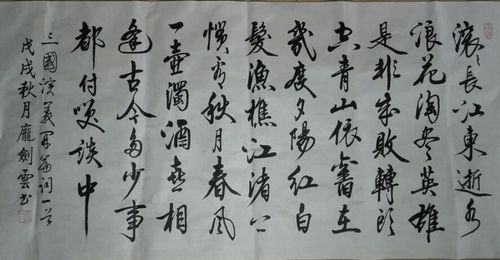 滚滚长江东逝水
浪花淘尽英雄
是非成败转头
空青山依旧在
几度夕阳红白
髮渔樵江渚上
惯看秋月春风
一壶濁酒喜相
逢古今多少事
都付笑谈中
三國演義开篇词一首
戊戌秋月龐劍雲书